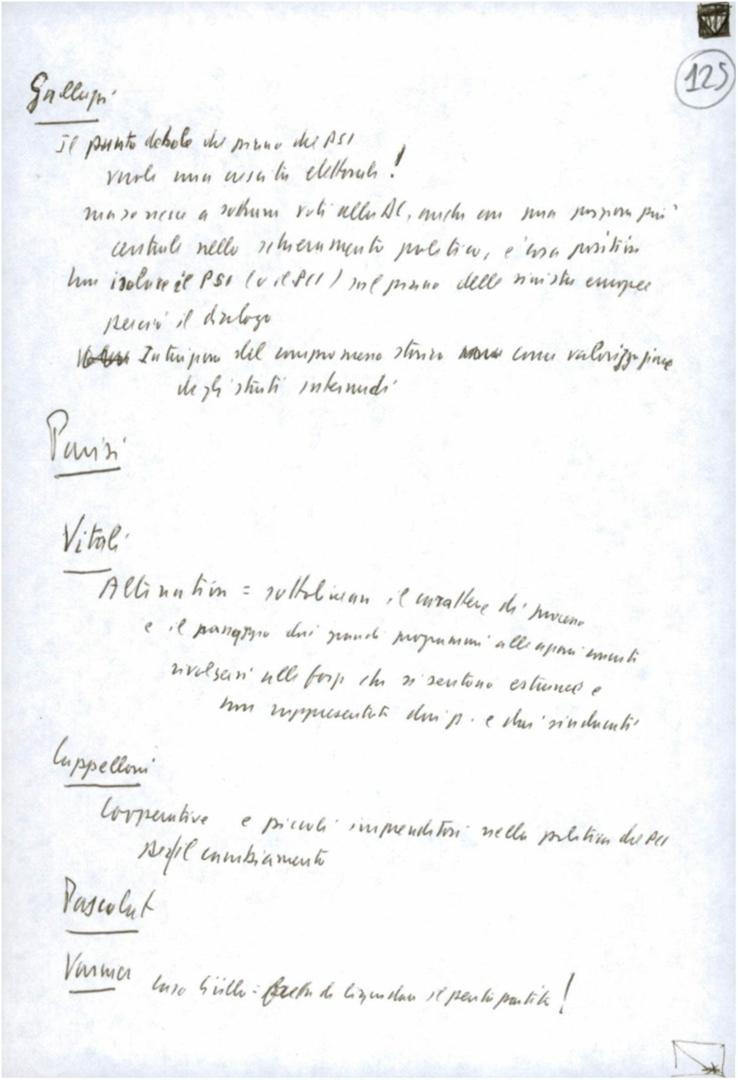 125
Galluppi
Il punto debole del piano del PSI
vuole una crescita elettorale!
ma se riesce a sottrarre voti alla DC, anche con una posizione più
centrale nello schieramento politico, è cosa positiva
Non isolare il PSI (o il PCI) sul piano delle sinistre europee
perciò il dialogo
Intuizione del compromesso storico come valorizzazione
degli strati intermedi
Parisi
Vitali
Alternativa = sottolineare il carattere di processo
e il passaggio dai grandi programmi alle
rivolgersi alle forze che si sentono estranee e
non rappresentate dai p. e dai sindacati
Cappelloni
Cooperative e piccoli imprenditori nella politica del PCI
per il cambiamento
Pascolat
Vanner
Caso - di liquidare il pentapartito!